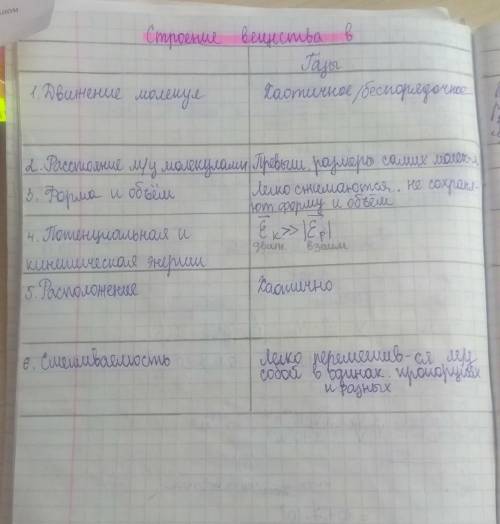 Строение вещества в
Газы
1. Движение молекул Хаотичное/беспорядочное
2. Расстояние м/у молекулами Превыш. размеры самих молек-л
3. Форма и объём Легко сжимаются, не сохраня-
ют форму и объём
4. Потенциальная и E̅к >> |E̅р|
кинетическая энергии движ. взаим
5. Расположение Хаотично
6. Смешиваемость Легко перемешив-ся м/у
собой в одинак. пропорциях
и разных